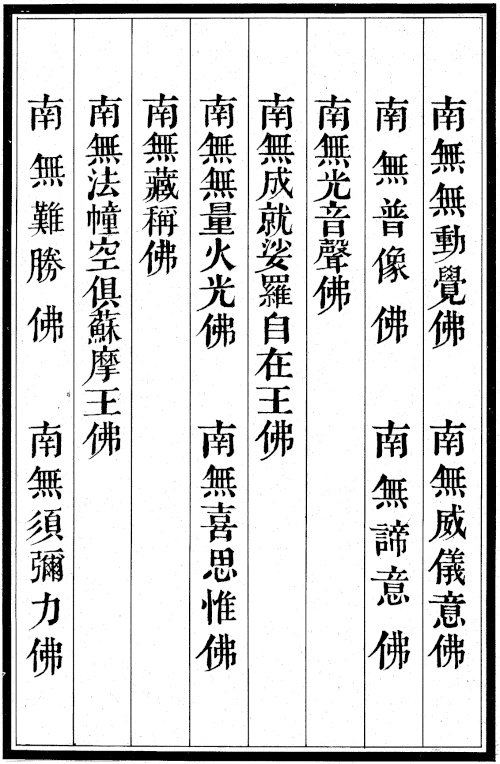 南無無動覺佛 南無威儀意佛
南無普像佛 南無諦意佛
南無光音聲佛
南無成就娑羅自在王佛
南無無量火光佛 南無喜思惟佛
南無藏稱佛
南無法幢空俱蘇摩王佛
南無難勝佛 南無須彌力佛